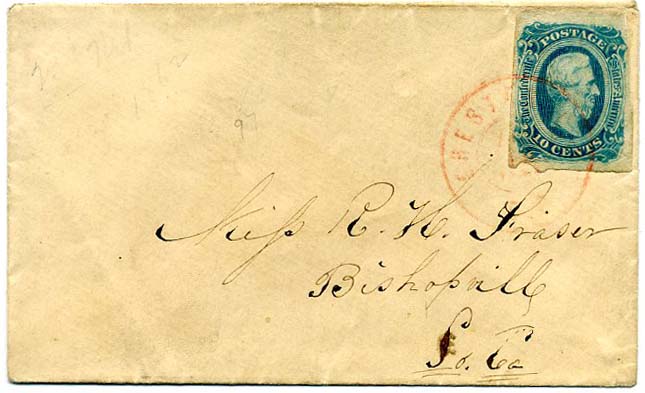 POSTAGE
The Confederate States of America
10 CENTS
CHEST
97
Miss R. H. Fraser
Bishopvill
So. Ca